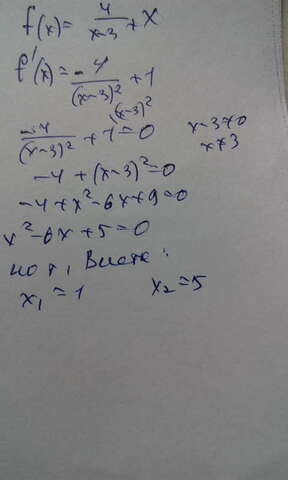 f(x) = 4/(x-3) + x
f'(x) = -4/(x-3)² + 1
-4/(x-3)² + 1 = 0 (x-3)² x-3≠0
x≠3
-4 + (x-3)² = 0
-4 + x² - 6x + 9 = 0
x² - 6x + 5 = 0
по т. Виета:
x₁ = 1 x₂ = 5